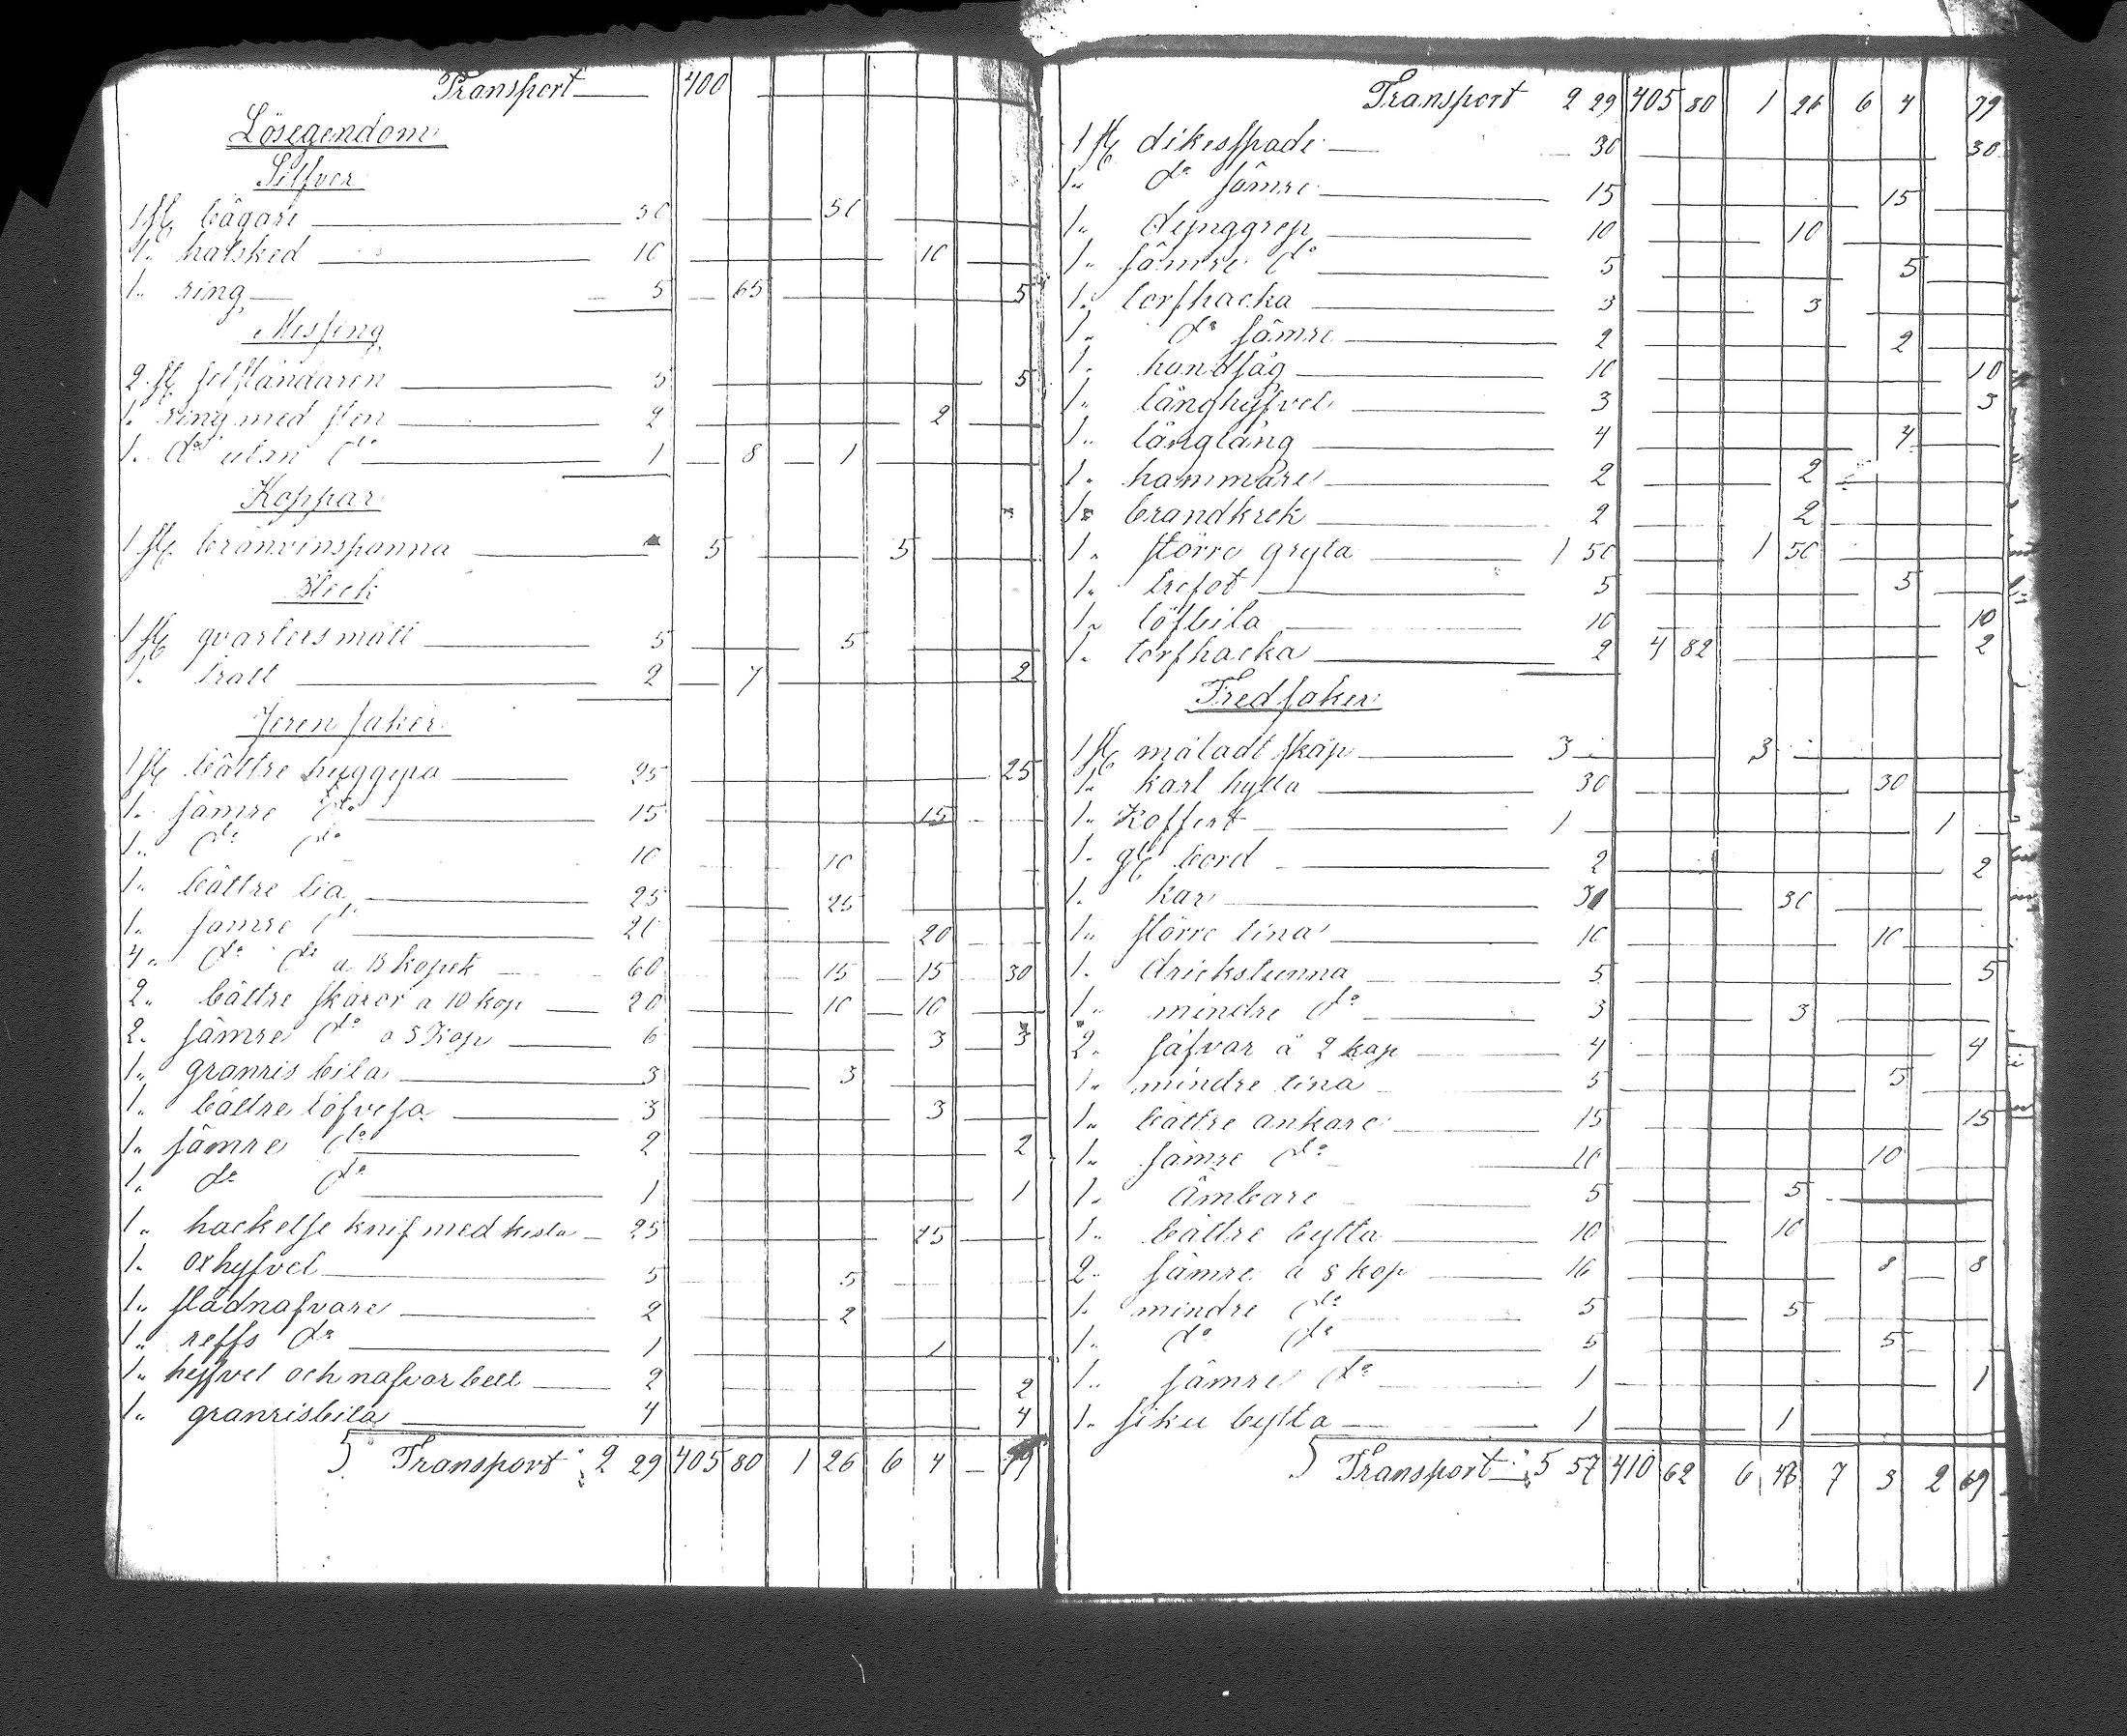 Transport 400
Lösegendom
Silfver
1 st bägare 50 50
1 " halsked 10 10
1 " ring 5 65 5
Messing
2 st selständaren 5 5
1 " ring med sten 2 2
1 " do utan do 1 8 1
Koppar
1 st brönvinspanna 5 5
Bleck
1 st qvartersmått 5 5
1 " tratt 2 7 2
Jeren saker
1 st bättre huggyxa 25 25
1 " sämre do 15 15
1 " do do 10 10
1 " bättre lia 25 25
1 " sämre do 20 20
4 " do do a 15 kopek 60 15 15 30
2 " bättre skäror a 10 kop 20 10 10
2 " sämre do a 3 Kop 6 3 3
1 " granris bila 3 3
1 " bättre löfvesa 3 3
1 " sämre do 2 2
1 " do do 1 1
1 " hackelse knif med kista 25 25
1 " oxhyfvel 5 5
1 " städnafvare 2 2
1 " reffs do 1 1
1 " hyfvel och nafvarbett 2 2
1 " granrisbila 4 4
Transport 2 29 405 80 1 26 6 4 — 79
Transport 2 29 405 80 1 26 6 4 79
1 st dikesspade 30 30
1 " do sämre 15 15
1 " dynggrep 10 10
1 " sämre do 5 5
1 " torfhacka 3 3
1 " do sämre 2 2
1 " handsåg 10 10
1 " långhyfvel 3 3
1 " långtång 4 4
1 " hammare 2 2
1 " brandkrok 2 2
1 " större gryta 1 50 1 50
1 " trefot 5 5
1 " löfbila 10 10
1 " torfhacka 2 4 82 2
Tredsaker
1 st måladt skåp 3 3
1 " karl hylla 30 30
1 " Koffert 1 1
1 " gl bord 2 2
1 " kar 30 30
1 " större tina 10 10
1 " drickstunna 5 5
1 " mindre do 3 3
2 " såfvar à 2 kop 4 4
1 " mindre tina 5 5
1 " bättre ankare 15 15
1 " sämre do 10 10
1 " Ämbare 5 5
1 " bättre bytta 10 10
2 " sämre a 8 kop 16 8 8
1 " mindre do 5 5
1 " do do 5 5
1 " sämre do 1 1
1 " siku bytta 1 1
Transport 5 57 410 62 6 48 7 3 2 69